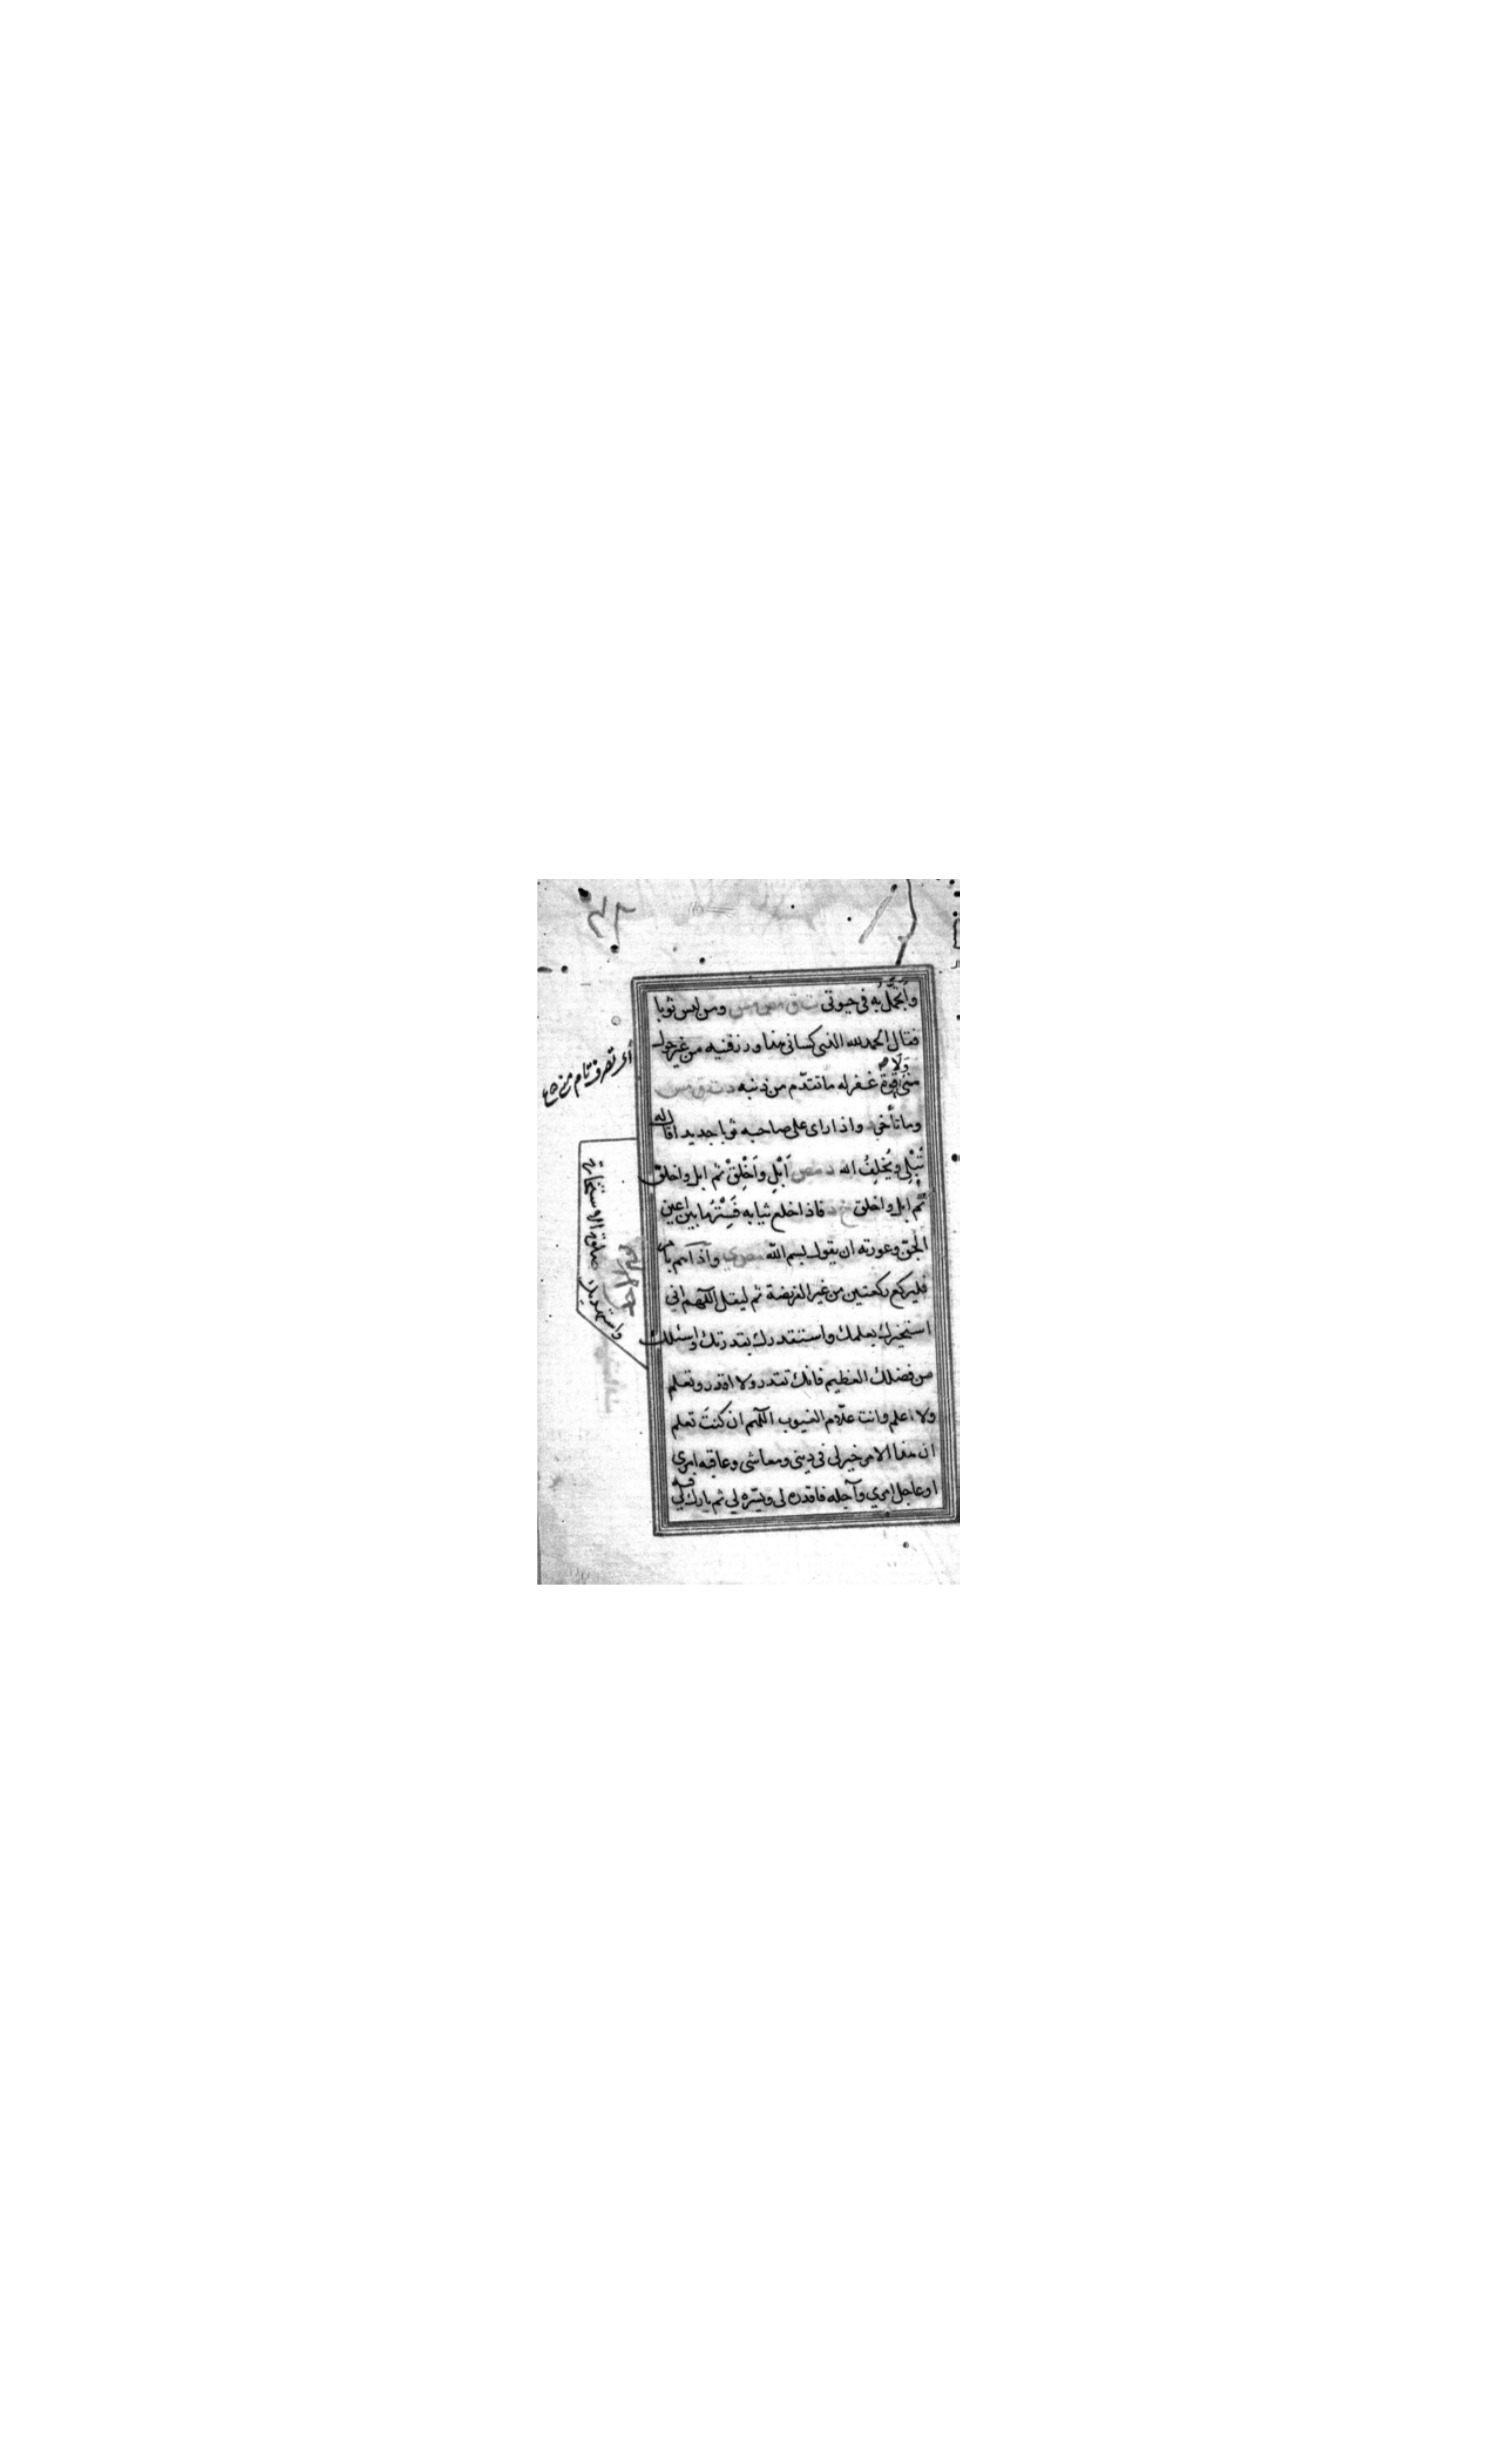 وَاَتَجَمَّلُ بِه في حيوتي ت ق مص مس ومن لبس ثوبا
فقال الحمد لله الذي كساني هذا ورزقنيه من غير حول
مني ولا قوة غفر له ما تقدّم من ذنبه د ت ق مس
وما تأخر د واذا راى على صاحبه ثوبا جديدا قال له
تُبْلِي ويُخلِفُ الله د مص اَبْلِ واَخْلِقْ ثم ابل واخلق
ثم ابل واخلق خ د فاذا خلع ثيابه فَسِتْرُ ما بين اعين
الجن وعورته ان يقول بسم الله مص ي واذا همّ بامر
فليركع ركعتين من غير الفريضة ثم ليقل اللهم اني
استخيرك بعلمك واستقدرك بقدرتك واسئلك
من فضلك العظيم فانك تقدر ولا اقدر وتعلم
ولا اعلم وانت علّام الغيوب اللهم ان كنتَ تعلم
ان هذا الامر خير لي في ديني ومعاشي وعاقبة امري
او عاجل امري وآجله فاقدره لي ويسّره لي ثم بارك لي فيه
اي تصرف تام
صلوة الاستخارة
واستهديك